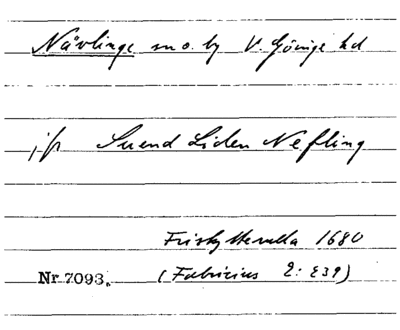 Nävlinge sn o. by V. Göinge hd
jfr Suend Liden Nefling
Friskytterulla 1680
Nr 7093. (Fabricius 2: 239)